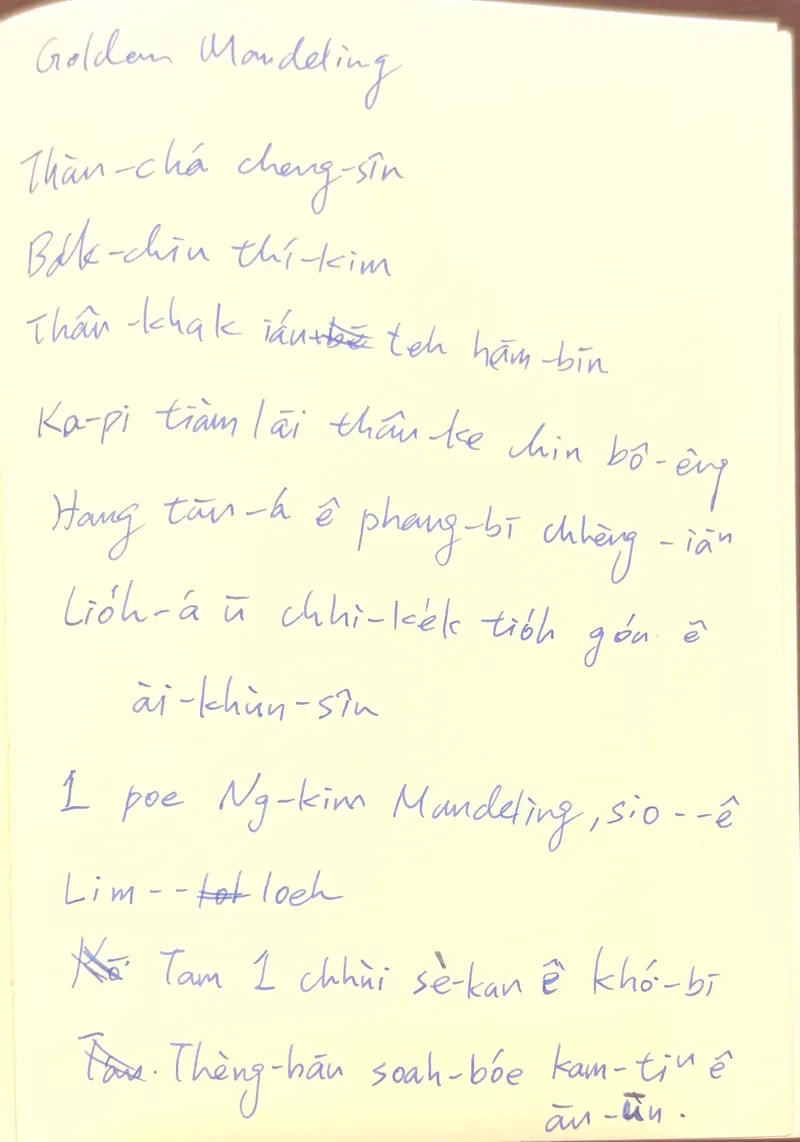 Golden Mandeling
Thàn-chá cheng-sîn
Ba̍k-chiu thí-kim
Thâu-khak iáu teh hām-bīn
Ka-pi tiàm lāi thâu-ke chin bô-êng
Hang tāu-á ê phang-bī chhèng-iāⁿ
Lio̍h-á ū chhì-kek tio̍h góu ê
ài-khùn-sîn
1 poe Ng-kim Mandeling, sio--ê
Lim--loeh
Tam 1 chhùi sè-kan ê khó͘-bī
Thèng-hāu soah-bóe kam-tiⁿ ê
āu-ūn.